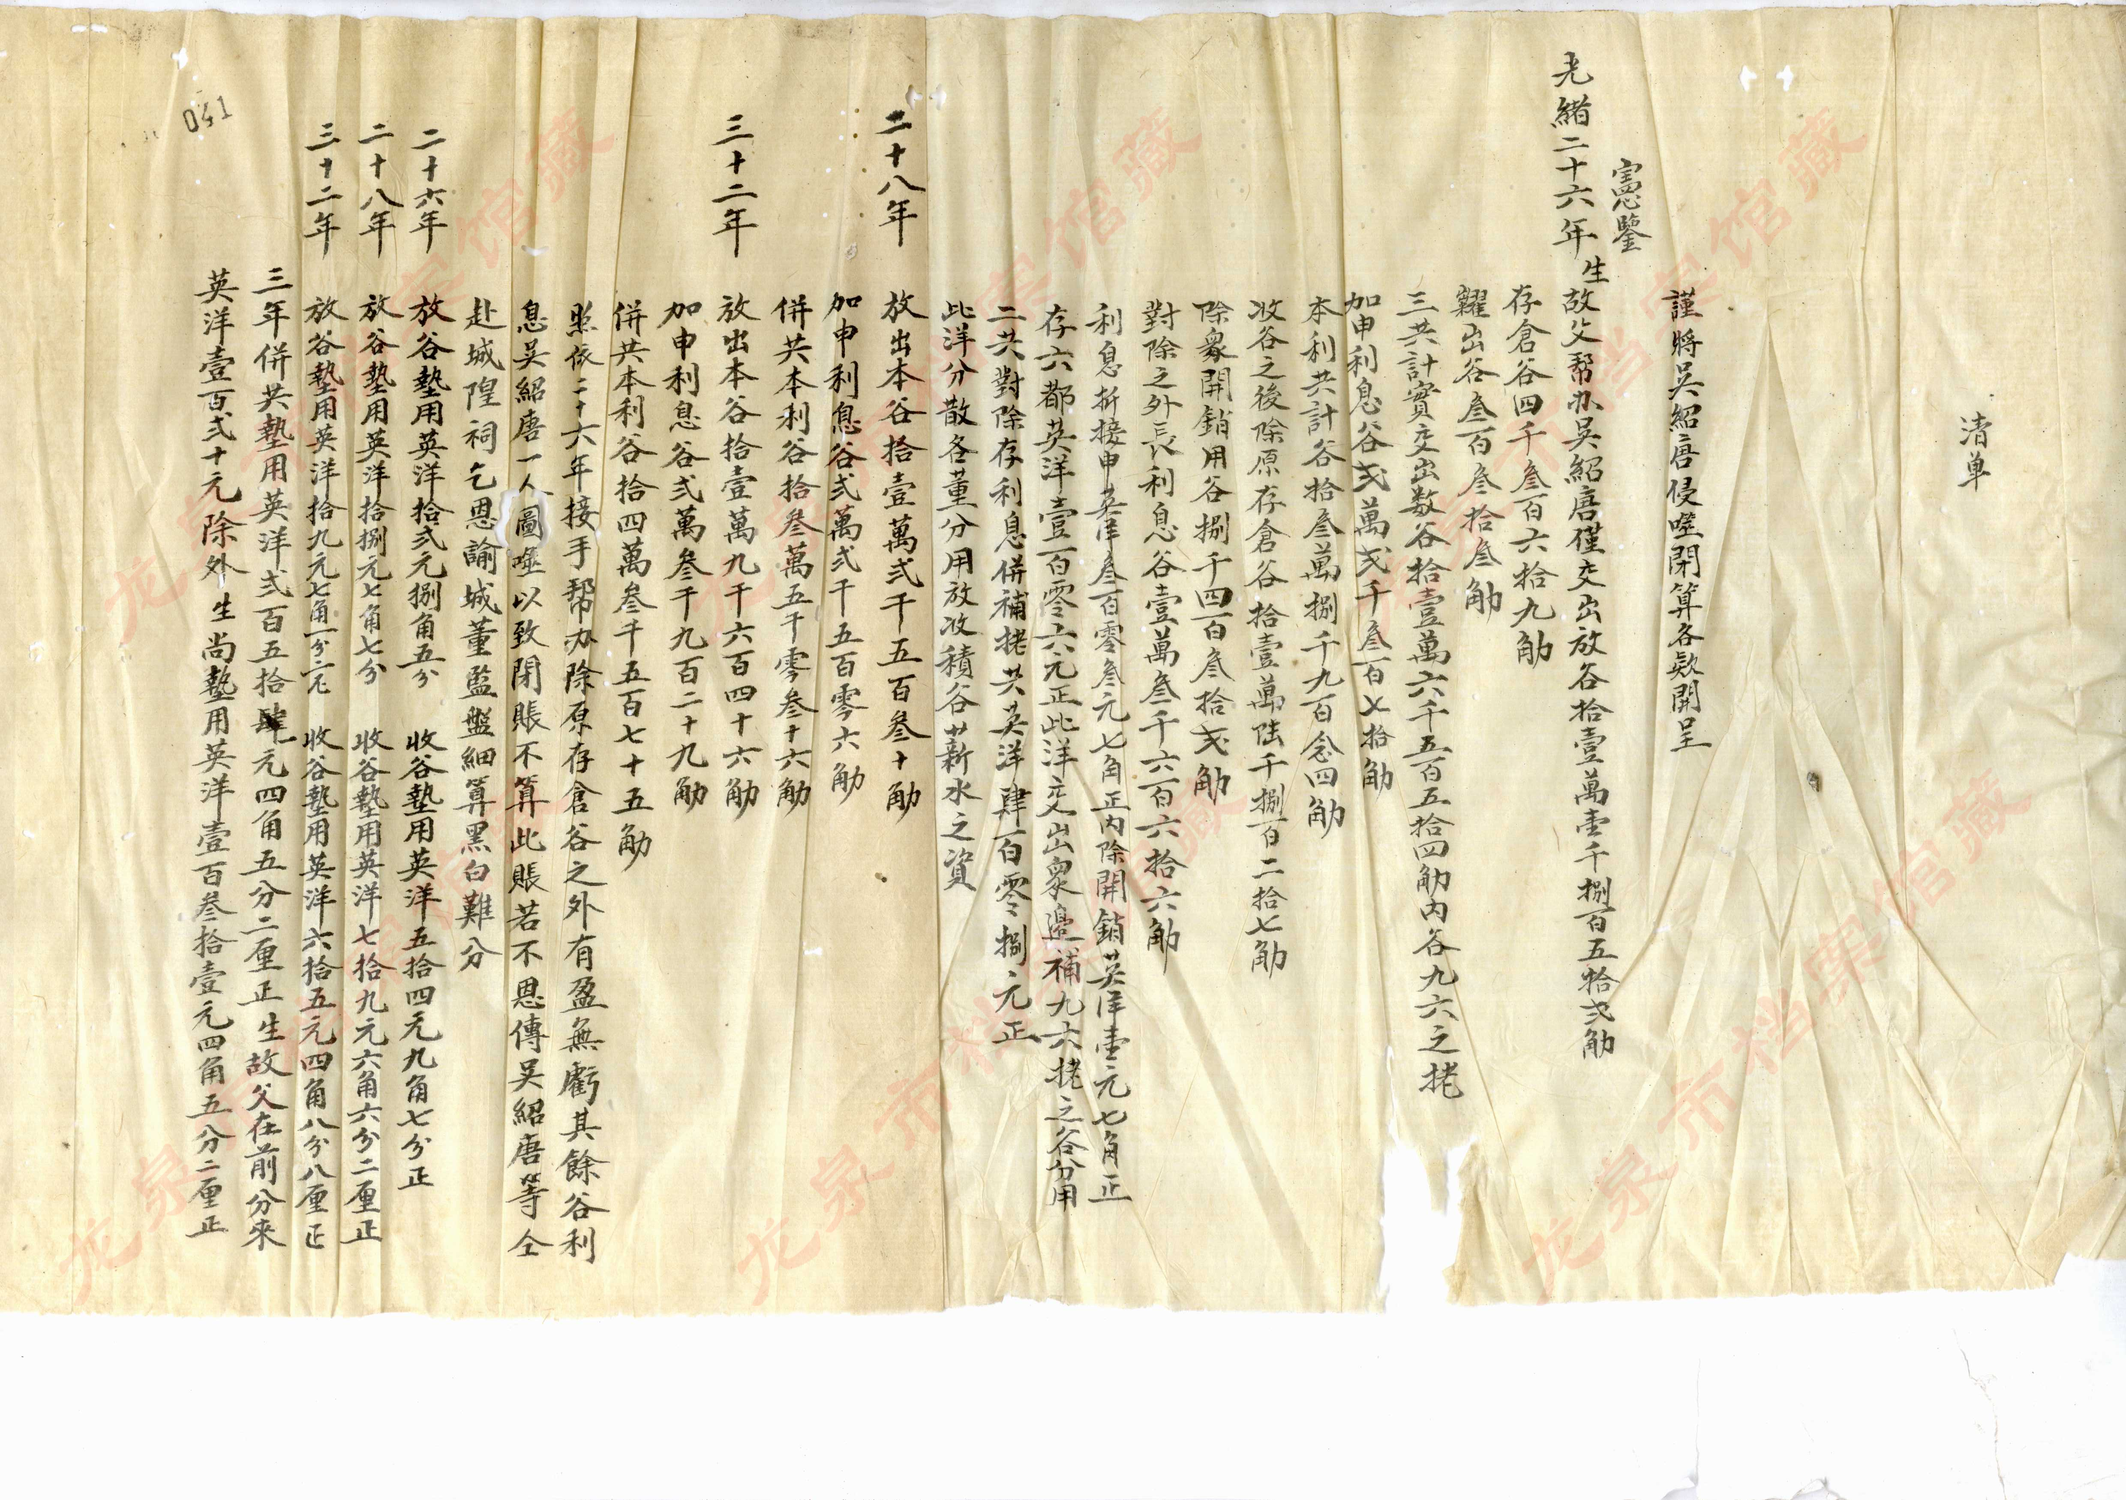 清单
謹將吳紹唐侵噬閉算各欵開呈
憲鑒
光緒二十六年 生故父幇办吳紹唐僅交出放谷拾壹萬壹千捌百五拾弍觔
存倉谷四千叁百六拾九觔
糶出谷叁百叁拾叁觔
三共計實交出数谷拾壹萬六千五百五拾四觔内谷九六之㧯
加申利息谷弍萬弍千叁百七拾觔
本利共計谷拾叁萬捌千九百念四觔
收谷之後除原存倉谷拾壹萬陆千捌百二拾七觔
除衆開銷用谷捌千四百叁拾弍觔
對除之外長利息谷壹萬叁千六百六拾六觔
利息折接申英洋叁百零叁元七角正内除開銷英洋壹元七角正
存六都英洋壹百零六元正此洋交出衆邉補九六㧯之谷分用
二共對除存利息併補㧯共英洋肆百零捌元正
此洋分散各董分用放收積谷薪水之資
二十八年 放出本谷拾壹萬弍千五百叁十觔
加申利息谷弍萬弍千五百零六觔
併共本利谷拾叁萬五千零叁十六觔
三十二年 放出本谷拾壹萬九千六百四十六觔
加申利息谷弍萬叁千九百二十九觔
併共本利谷拾四萬叁千五百七十五觔
照依二十六年接手幇办除原存倉谷之外有盈無虧其餘谷利
息吳紹唐一人圖噬以致閉賬不算此賬若不恩傳吳紹唐等仝
赴城隍祠乞恩諭城董監盤細算黑白難分
二十六年 放谷墊用英洋拾弍元捌角五分 收谷墊用英洋五拾四元九角七分正
二十八年 放谷墊用英洋拾捌元七角七分 收谷墊用英洋七拾九元六角六分二厘正
三十二年 放谷墊用英洋拾九元七角一分二厘 收谷墊用英洋六拾五元四角八分八厘正
三年併共墊用英洋弍百五拾肆元四角五分二厘正 生故父在前分來
英洋壹百弍十元除外 生尚墊用英洋壹百叁拾壹元四角五分二厘正
041